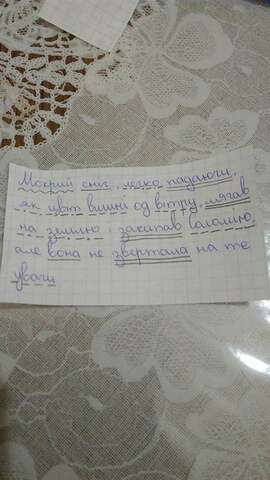 Мокрий сніг, легко падаючи,
як цвіт вишні од вітру, лягав
на землю і закипав балолию,
але вона не звертала на те
уваги